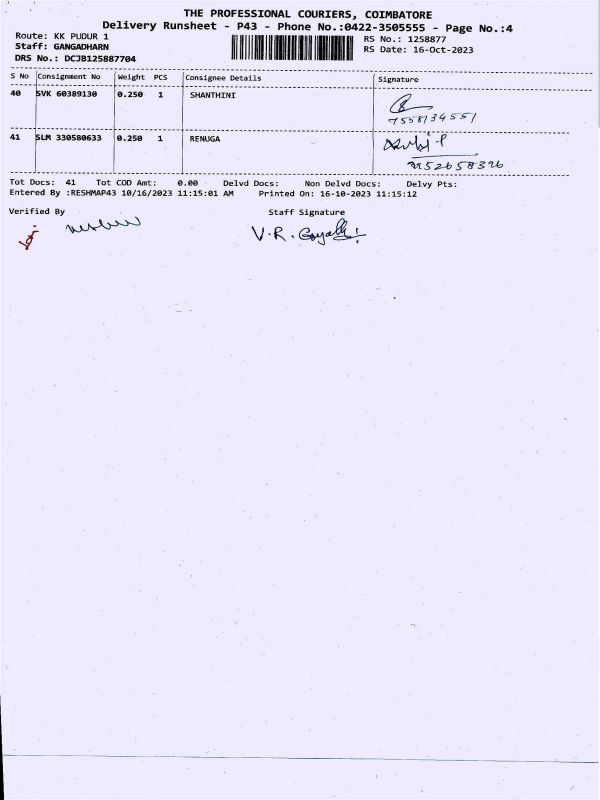 THE PROFESSIONAL COURIERS, COIMBATORE
Delivery Runsheet - P43 - Phone No.:0422-3505555 - Page No.:4
Route: KK PUDUR 1 RS No.: 1258877
Staff: GANGADHARN RS Date: 16-Oct-2023
DRS No.: DCJB125887704
S No Consignment No Weight PCS Consignee Details Signature
40 SVK 60389130 0.250 1 SHANTHINI
7558134551
41 SLM 330580633 0.250 1 RENUGA
Tot Docs: 41 Tot COD Amt: 0.00 Delvd Docs: Non Delvd Docs: Delvy Pts:
Entered By :RESHMAP43 10/16/2023 11:15:01 AM Printed On: 16-10-2023 11:15:12
Verified By Staff Signature
V.R.